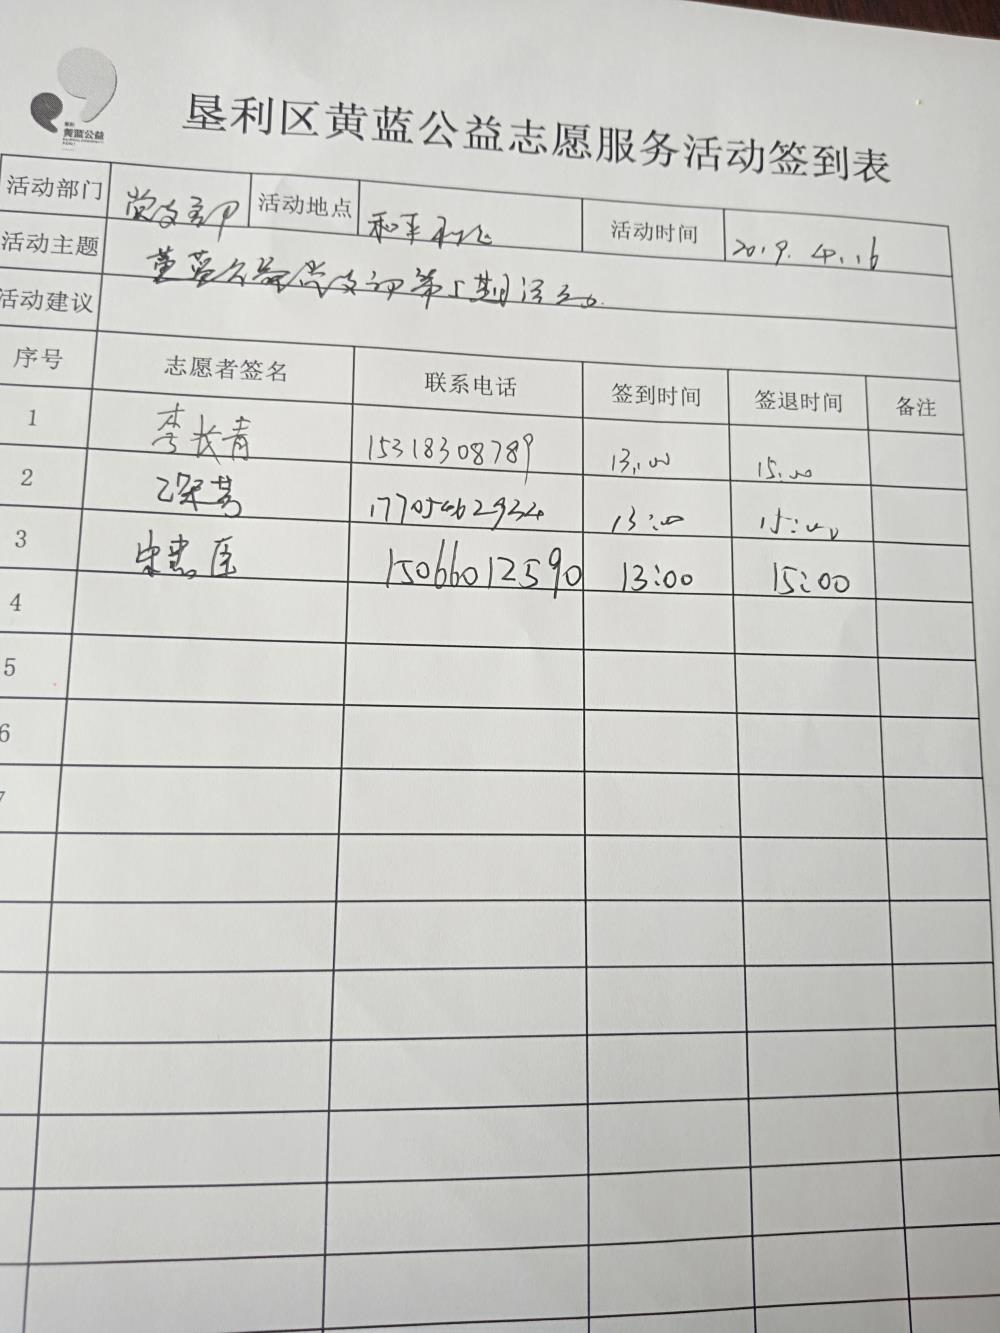 黄蓝公益
垦利区黄蓝公益志愿服务活动签到表
活动部门 党支部 活动地点 和平 活动时间 2019.4.16
活动主题 黄蓝公益党支部第5期活动.
活动建议
序号 志愿者签名 联系电话 签到时间 签退时间 备注
1 李长青 15318308789 13:00 15:00
2 17705462934 13:00 15:00
3 15066012590 13:00 15:00
4
5
6
7